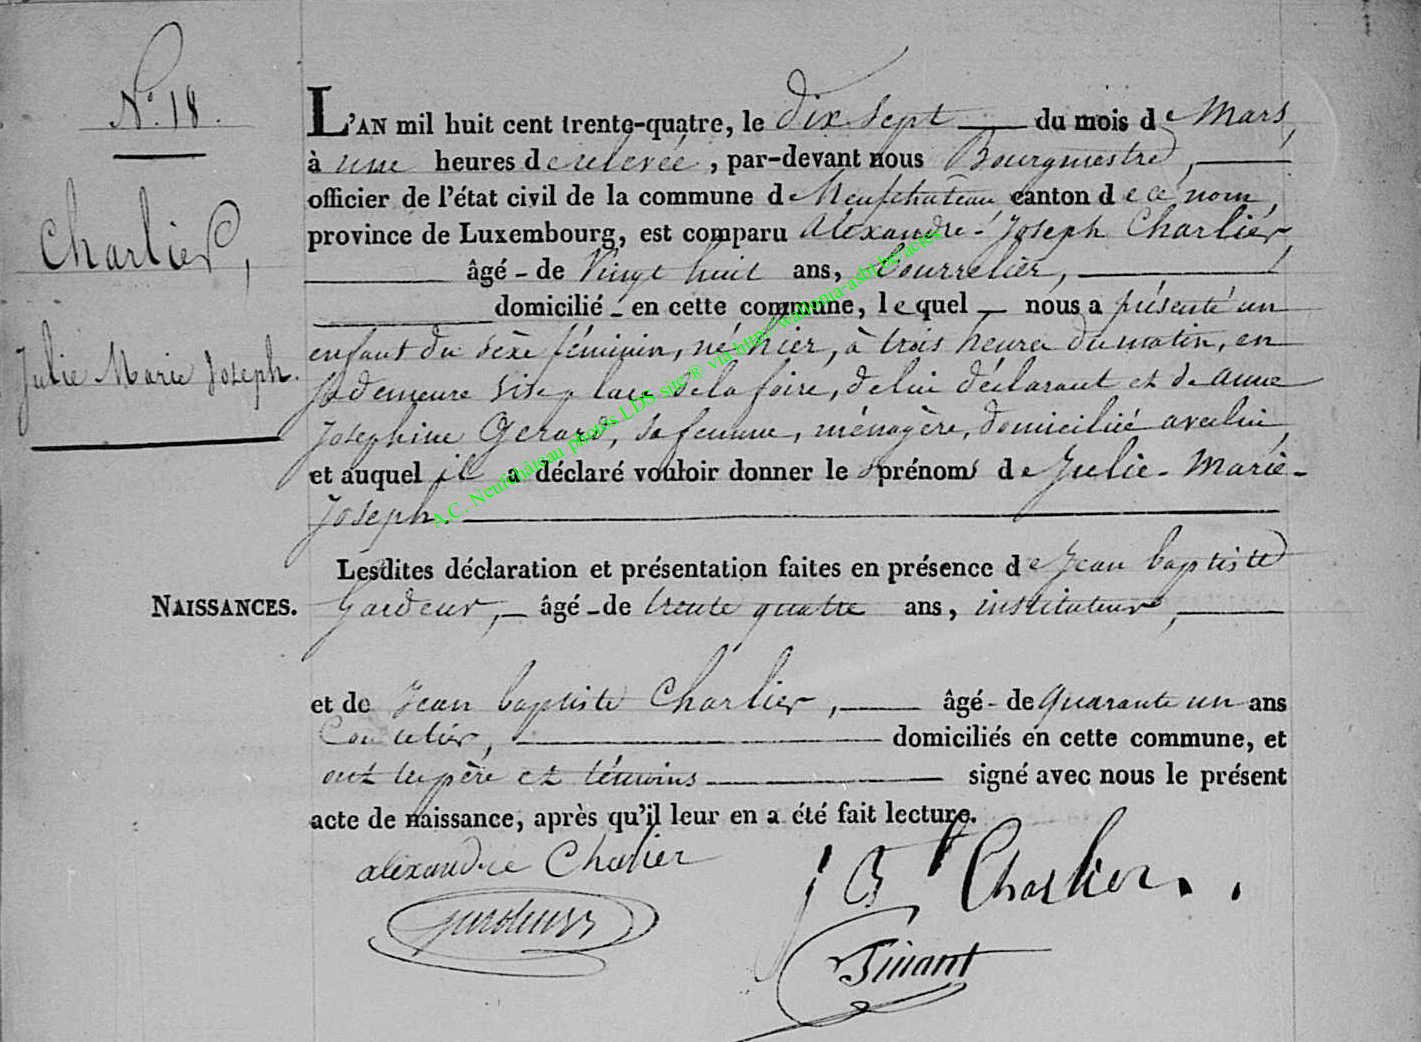 N.° 18.
Charlier,
Julie Marie Joseph.
NAISSANCES.
L'AN mil huit cent trente-quatre, le dix sept du mois de Mars,
à une heures de relevée, par-devant nous Bourgmestre,
officier de l'état civil de la commune de Neufchateau, canton de ce nom,
province de Luxembourg, est comparu Alexandre-Joseph Charlier,
âgé - de Vingt huit ans, bourrelier,
domicilié - en cette commune, lequel — nous a présenté un
enfant du sèxe féminin, né hier, à trois heures du matin, en
sa demeure sise place de la foire, de lui déclarant et de anne
Josephine Gerard, sa femme, ménagère, domiciliée avec lui,
et auquel il a déclaré vouloir donner les prénoms de Julie-Marie-
Joseph.
Lesdites déclaration et présentation faites en présence de Jean baptiste
Gardeur, — âgé - de trente quatre ans, instituteur,
et de Jean baptiste Charlier, — âgé - de quarante un ans
domiciliés en cette commune, et
ont les père et témoins signé avec nous le présent
acte de naissance, après qu'il leur en a été fait lecture.
alexandre Charlier
J B t Charlier
A.C. Neufchâteau photos LDS site ® via http://wallonia-asbl.be/actes